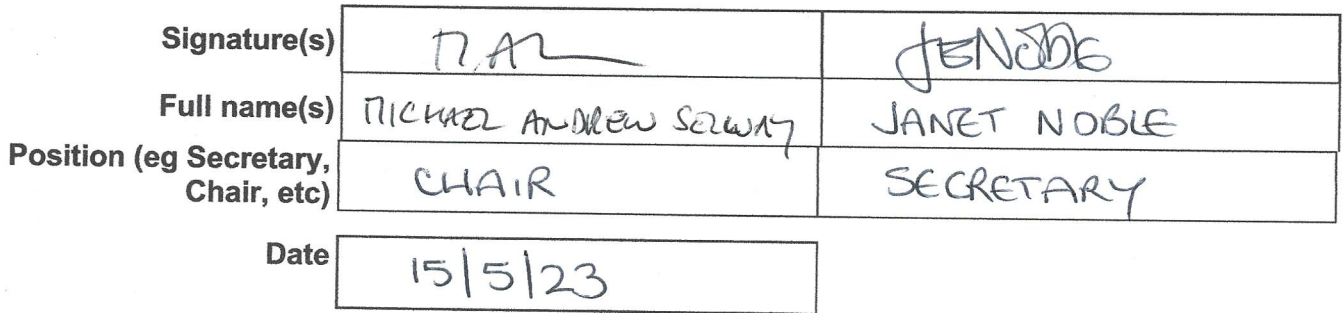 Signature(s)
Full name(s) MICHAEL ANDREW SELWAY JANET NOBLE
Position (eg Secretary,
Chair, etc) CHAIR SECRETARY
Date 15/5/23